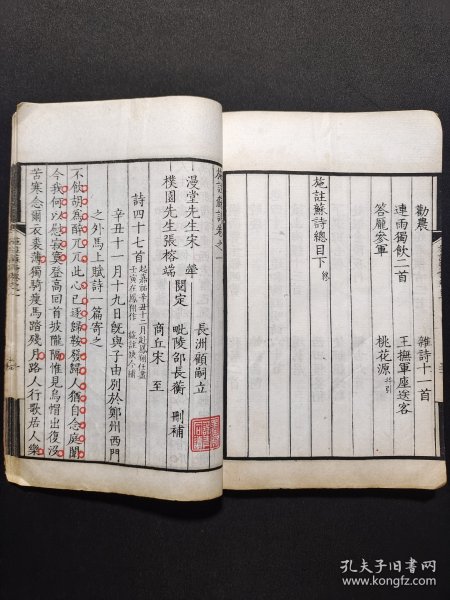 勸農 雜詩十一首
連雨獨飲二首 王撫軍座送客
答龐參軍 桃花源 并引
施註蘇詩總目下 終
施註蘇詩卷之一
漫堂先生宋犖 長洲顧嗣立
樸園先生張榕端 閱定 毗陵邵長蘅 刪補
商丘宋至
詩四十七首
辛丑十一月十九日既與子由別於鄭州西門
之外馬上賦詩一篇寄之
不飲胡為醉兀兀此心已逐歸鞍發歸人猶自念庭闈
今我何以慰寂寞登高回首坡隴隔惟見烏帽出復沒
苦寒念爾衣裘薄獨騎瘦馬踏殘月路人行歌居人樂
孔夫子旧书网
www.kongfz.com